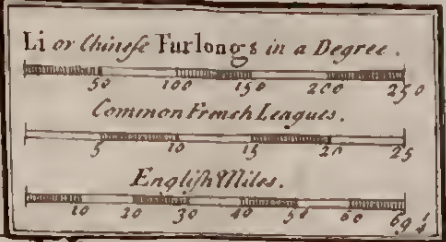 Li or Chineſe Furlongs in a Degree.
50 100 150 200 250
Common French Leagues.
5 10 15 20 25
Engliſh Miles.
10 20 30 40 50 60 69½